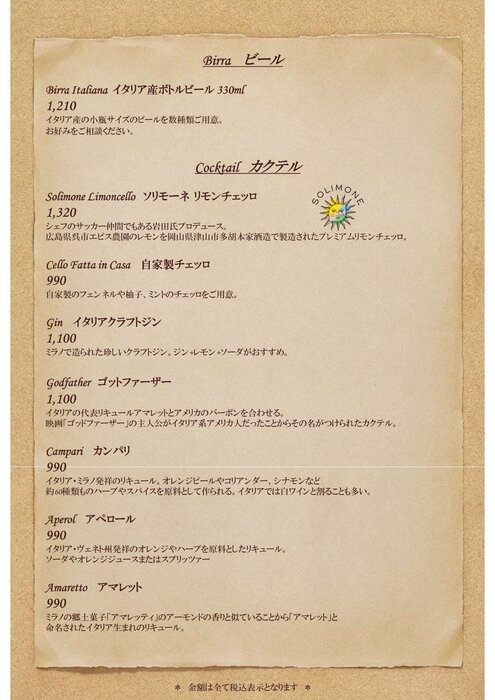 Birra ビール
Birra Italiana イタリア産ボトルビール 330ml
1,210
イタリア産の小瓶サイズのビールを数種類ご用意。
お好みをご相談ください。
Cocktail カクテル
Solimone Limoncello ソリモーネ リモンチェッロ
SOLIMONE
1,320
シェフのサッカー仲間でもある岩田氏プロデュース。
広島県呉市エビス農園のレモンを岡山県津山市多胡本家酒造で製造されたプレミアムリモンチェッロ。
Cello Fatta in Casa 自家製チェッロ
990
自家製のフェンネルや柚子、ミントのチェッロをご用意。
Gin イタリアクラフトジン
1,100
ミラノで造られた珍しいクラフトジン。ジン+レモン+ソーダがおすすめ。
Godfather ゴットファーザー
1,100
イタリアの代表リキュールアマレットとアメリカのバーボンを合わせる。
映画「ゴッドファーザー」の主人公がイタリア系アメリカ人だったことからその名がつけられたカクテル。
Campari カンパリ
990
イタリア・ミラノ発祥のリキュール。オレンジピールやコリアンダー、シナモンなど
約60種類ものハーブやスパイスを原料として作られる。イタリアでは白ワインと割ることも多い。
Aperol アペロール
990
イタリア・ヴェネト州発祥のオレンジやハーブを原料としたリキュール。
ソーダやオレンジジュースまたはスプリッツァー
Amaretto アマレット
990
ミラノの郷土菓子「アマレッティ」のアーモンドの香りと似ていることから「アマレット」と
命名されたイタリア生まれのリキュール。
* 金額は全て税込表示となります *